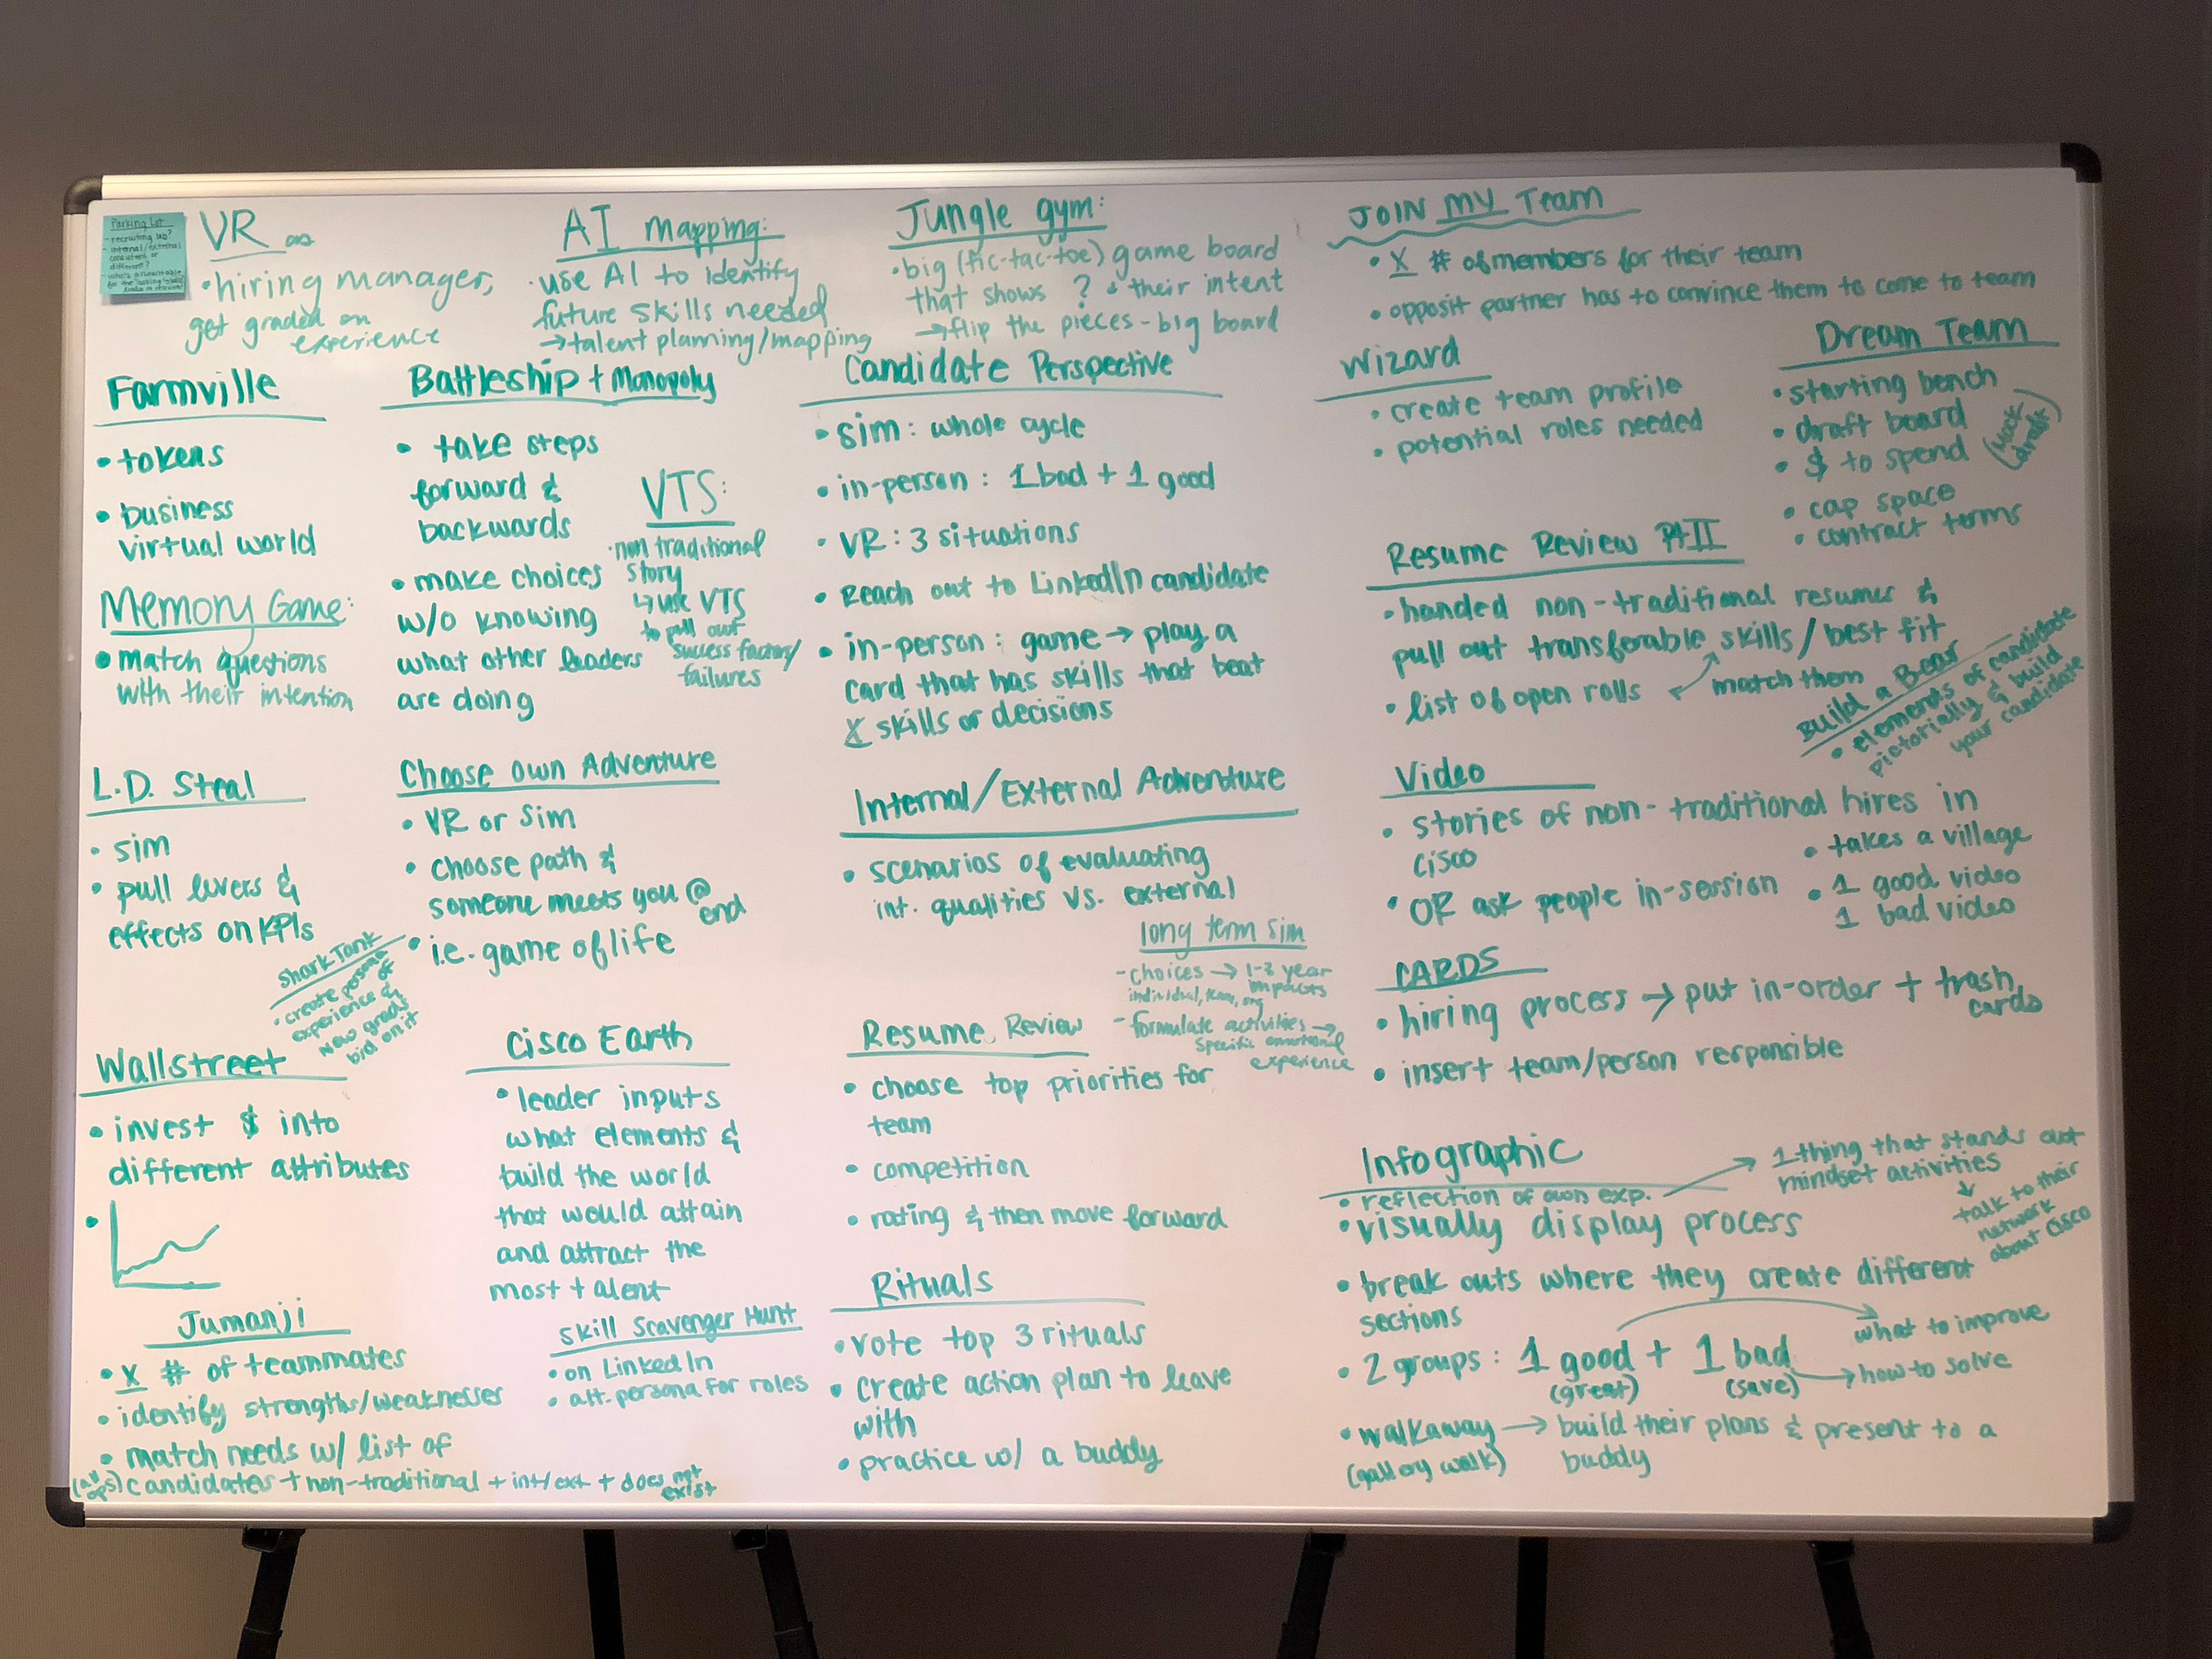 Parking Lot
- recruiting
- internal/external
consistent or
different?
VR
• hiring manager,
get graded on
experience
AI mapping:
• use AI to identify
future skills needed
→ talent planning/mapping
Jungle gym:
• big (tic-tac-toe) game board
that shows ? & their intent
→ flip the pieces - big board
JOIN MY Team
• X # of members for their team
• opposit partner has to convince them to come to team
Farmville
• tokens
• business
virtual world
Memory Game:
• match questions
with their intention
L.D. Steal
• sim
• pull levers &
effects on KPIs
Shark Tank
• create persona
of
experience &
new grads
bid on it
Wallstreet
• invest $ into
different attributes
•
Jumanji
• X # of teammates
• identify strengths/weaknesses
• match needs w/ list of
candidates + non-traditional + int/ext + does not
exist
Battleship + Monopoly
• take steps
forward &
backwards
• make choices
w/o knowing
what other leaders
are doing
VTS:
• non traditional
story
↳ use VTS
to pull out
success factors/
failures
Choose own Adventure
• VR or Sim
• choose path &
someone meets you @
end
• i.e. game of life
Cisco Earth
• leader inputs
what elements &
build the world
that would attain
and attract the
most talent
Skill Scavenger Hunt
• on LinkedIn
• alt. persona for roles
Candidate Perspective
• sim: whole cycle
• in-person: 1 bad + 1 good
• VR: 3 situations
• Reach out to LinkedIn candidate
• in-person: game → play a
card that has skills that beat
X skills or decisions
Internal/External Adventure
• scenarios of evaluating
int. qualities vs. external
long term sim
- choices → 1-3 year
impacts
individual, team, org
- formulate activities →
specific emotional
experience
Resume Review
• choose top priorities for
team
• competition
• rating & then move forward
Rituals
• vote top 3 rituals
• create action plan to leave
with
• practice w/ a buddy
Wizard
• create team profile
• potential roles needed
Dream Team
• starting bench
• draft board
• $ to spend
(Mock
draft)
• cap space
• contract terms
Resume Review Pt II
• handed non-traditional resumes &
pull out transferable skills/best fit
• list of open rolls
match them
Build a Bear
• elements of candidate
pictorially & build
your candidate
Video
• stories of non-traditional hires in
Cisco
• OR ask people in-session
• takes a village
• 1 good video
1 bad video
CARDS
• hiring process → put in-order + trash
cards
• insert team/person responsible
Infographic
• reflection of own exp.
1 thing that stands out
mindset activities
↓
talk to their
network
about Cisco
• visually display process
• break outs where they create different
sections
• 2 groups: 1 good + 1 bad
(great) (save)
what to improve
→ how to solve
• walkaway → build their plans & present to a
(gallery walk) buddy